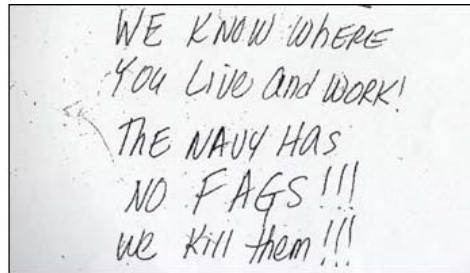 WE KNOW WhERE
You Live and WORK!
ThE NAVY HAS
NO FAGS!!!
we Kill them!!!